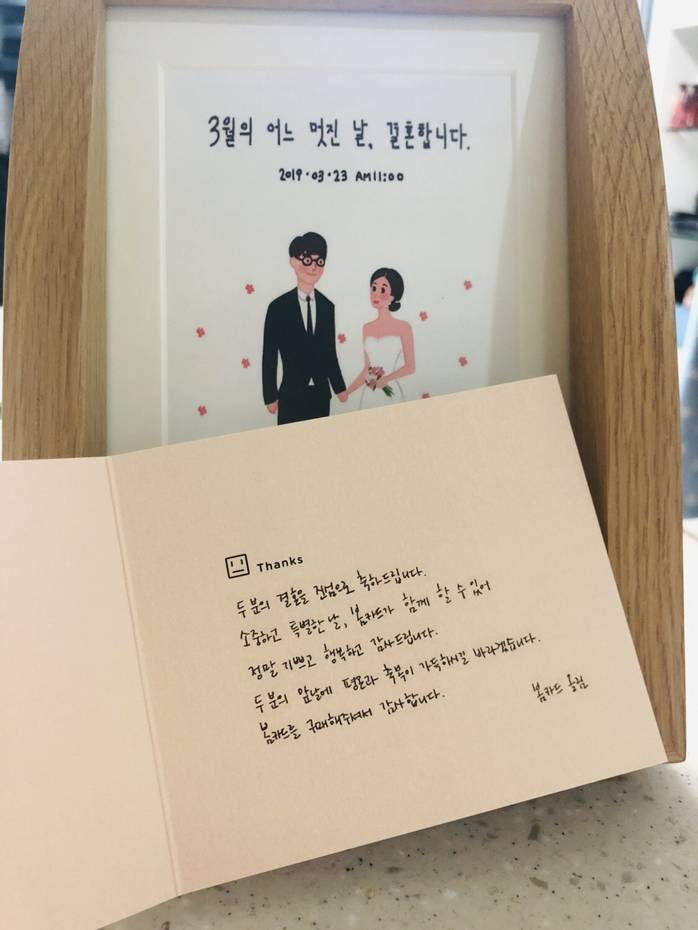 3월의 어느 멋진 날, 결혼합니다.
2019·03·23 AM11:00
Thanks
두 분의 결혼을 진심으로 축하드립니다.
소중하고 특별한 날, 봄카드가 함께 할 수 있어
정말 기쁘고 행복하고 감사드립니다.
두 분의 앞날에 평온과 축복이 가득하시길 바라겠습니다.
봄카드를 구매해주셔서 감사합니다.
봄카드 올림